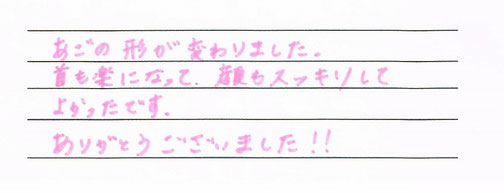 あごの形が変わりました。
首も楽になって、顔もスッキリして
よかったです。
ありがとうございました!!